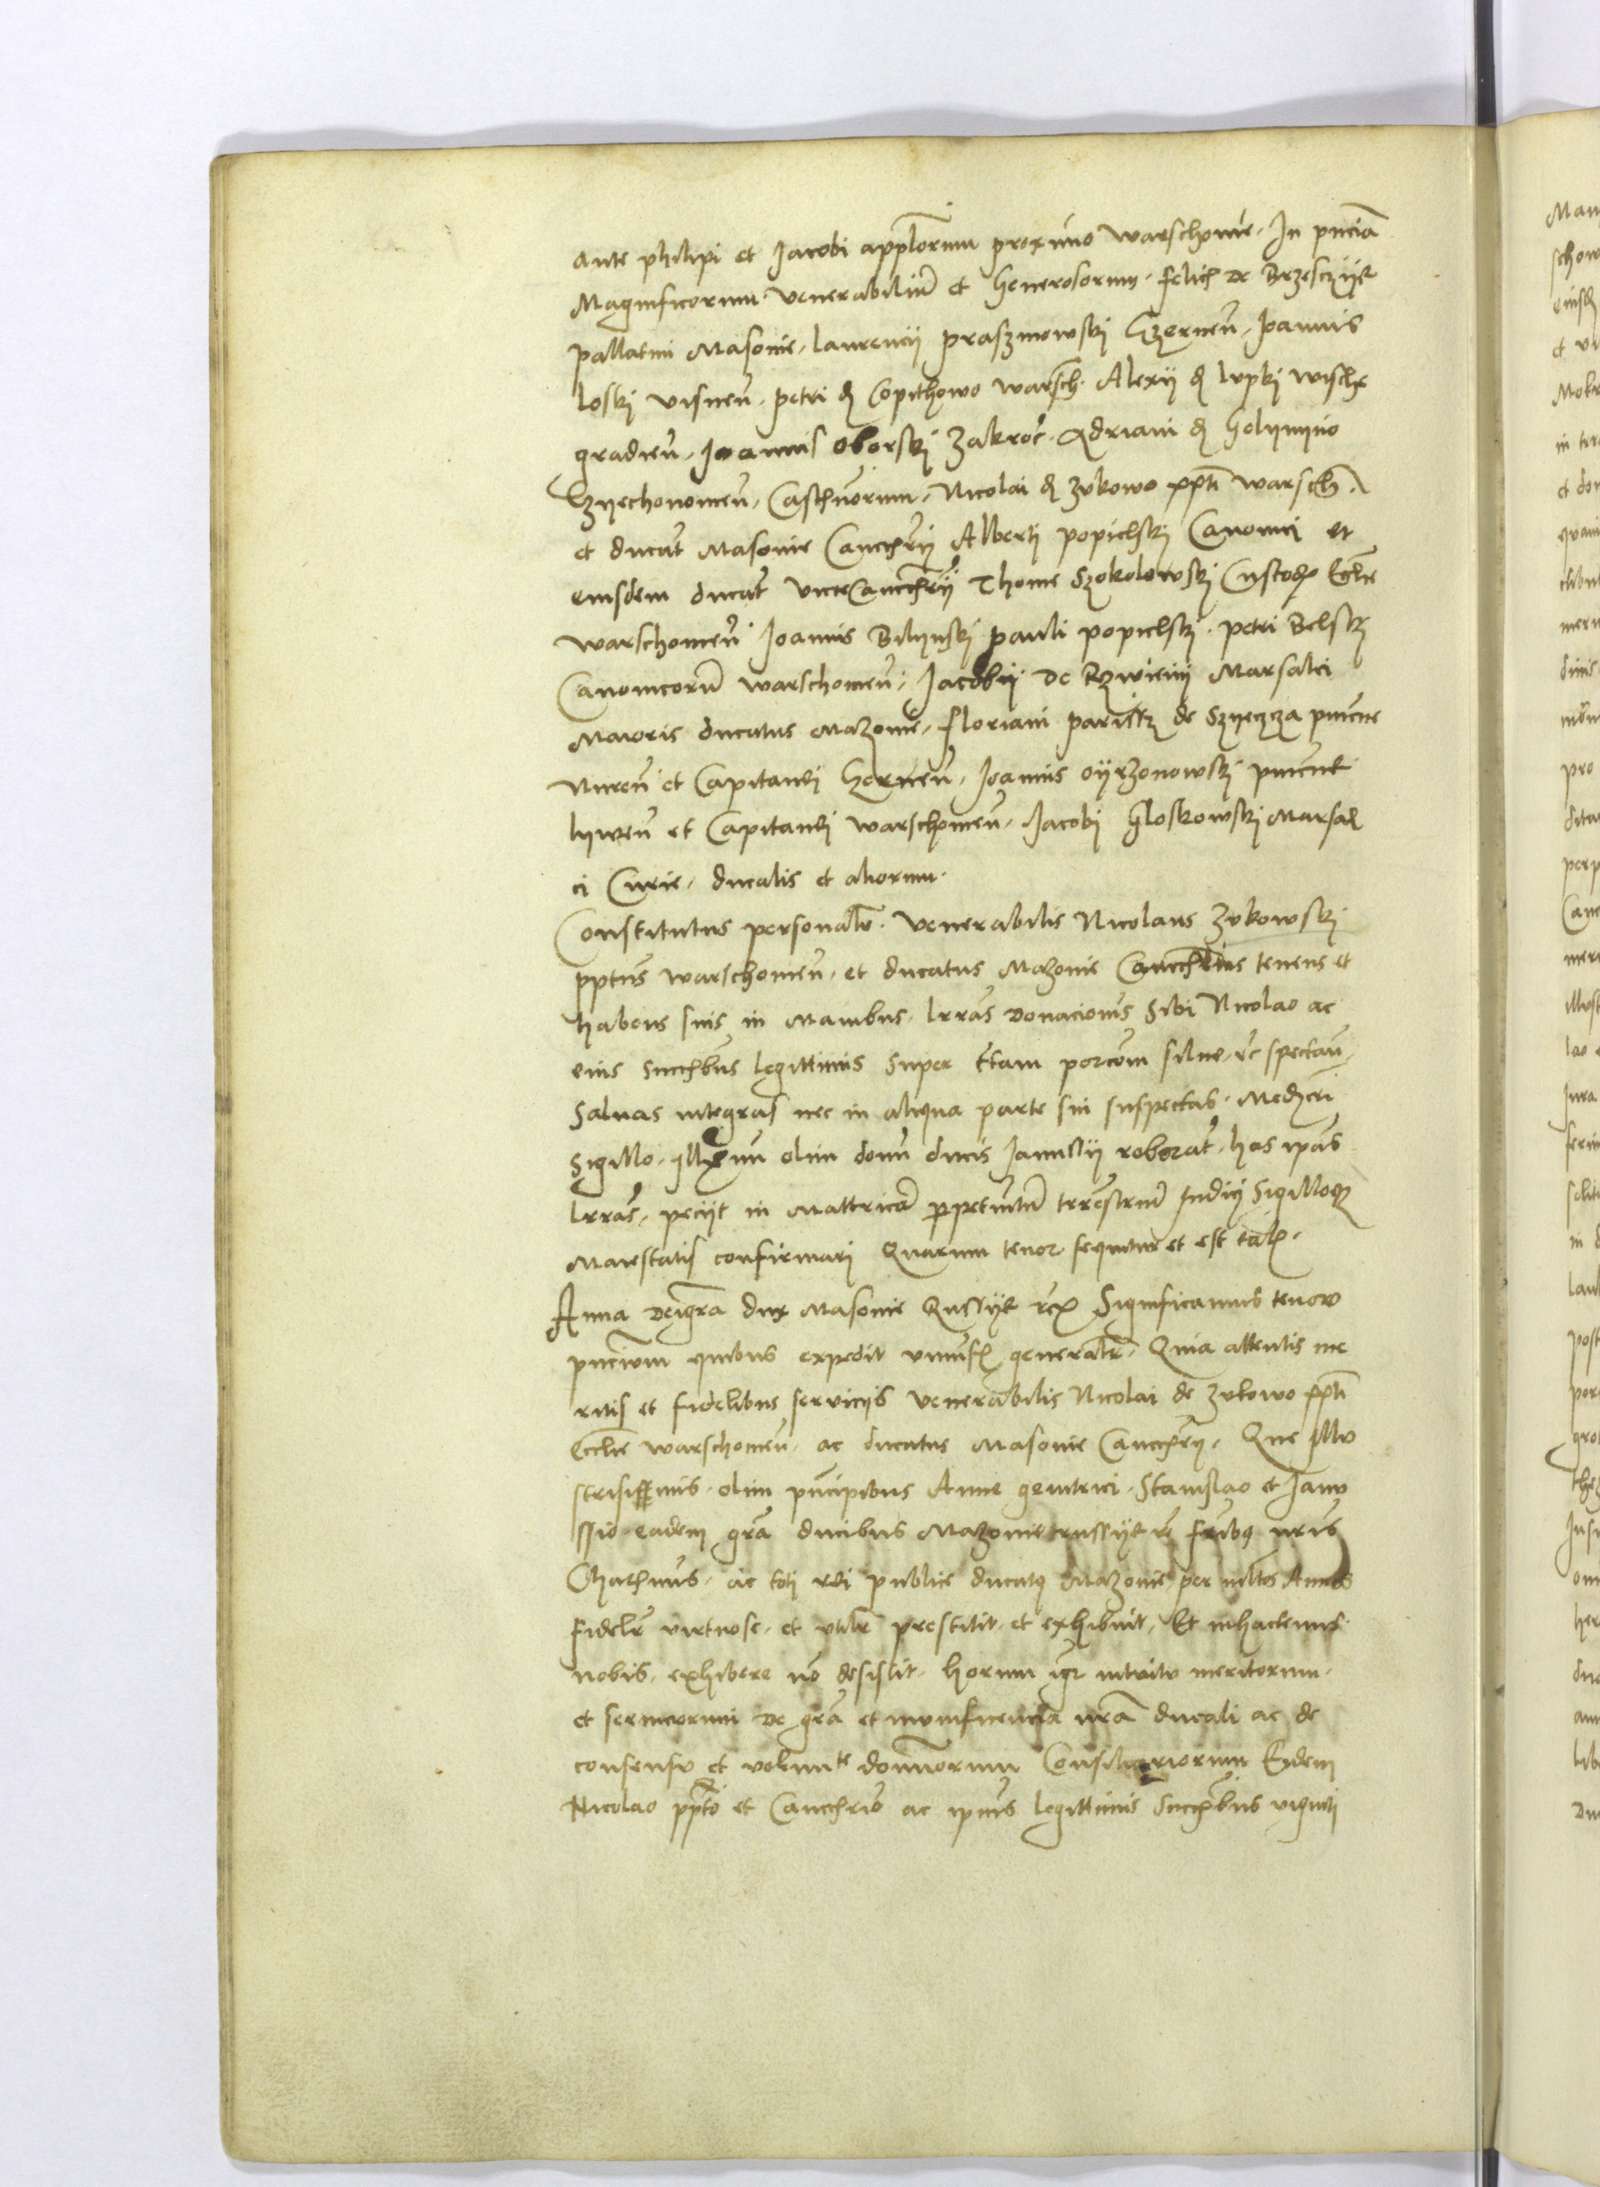 ante philipi et Jacobi appl̃orum proximo Warschouie. In pn̄cia
Magnificorum. Venerabiliū et Generosorum. Felicis de Brzesczÿe
pallatini Masouie, laurencii prazmowski Czernen̄, Joannis
loski Visnen̄. petri de Copithowo Warsch. Alexii de lupki Wisch
graden̄, Joannis oborski Zakroc̄. Adriani de Golymyno
Czyechonouien̄, Castlnorum, Nicolai de Zukowo ppti Warsch.
et ducat Masouie Canchrÿ Alberti popielski Canonici et
eiusdem ducat viceCanchrÿ Thome Szokolowski Custodis Eccl̄ie
Warschouien̄ Joannis Bilynski pauli popielski. petri Belski
Canonicorū Warschouien̄, Jacobÿ de Rzwienÿ Marsalci
Maioris ducatus Mazouie, floriani parissz de pn̄cne
Nuren̄ et Capitanei Gernen̄, Joannis oÿrzonowski pn̄cne
lywen̄ et Capitanei Warschouien̄, Jacobi Gloskowski Marsal
ci Curie, ducalis et aliorum.
Constitutus personalr̄. Venerabilis Nicolaus Zukowski
pptus Warschouien̄. et ducatus Mazouie Canchrius tenens et
habens suis in Manibus. lrās donacionis sibi Nicolao ac
eius succbus legittimis super t̄tiam porcom̄ silue. rc̄ spectan̄,
Saluas integras nec in aliqua parte sui suspectas. Medzcri
Sigillo. Illmi olim domi ducis Janussÿ roborat̄. has ipās
lrās, peciit in Mattricā perpetuitū terrestriū Judicÿ Sigilloq
Maiestatis confirmari Quarum tenor sequitur et est talis.
Anna deigrā dux Masouie Russÿe rc̄ Significamus tenore
pn̄ciom quibus expedit vniuersis generalr̄. Quia attentis me
ritis et fidelibus seruicÿs Venerabilis Nicolai de Zukowo ppti
Eccl̄ie Warschouien̄. ac ducatus Masouie Canchrÿ. Que Illu
strisissimis. olim pn̄cipibus Anne genitrici. Stanislao et Janu
ssio. eadem grā ducibus Mazouie russÿe rc̄ fribus nris
Charimis. ac toti rei publice ducatus Mazouie per multos Annos
fidelr̄ virtuose. et vtilr̄ prestitit. et exhibuit, Et inhactenus
nobis. exhibere nō desistit. horum igr intuitu meritorum.
et seruiciorum de grā et munificencia nrā ducali ac de
consensu et volunte dominorum Consiliariorum Eydem
Nicolao ppto et Canchrio ac ipius legittimis Succbus viginti